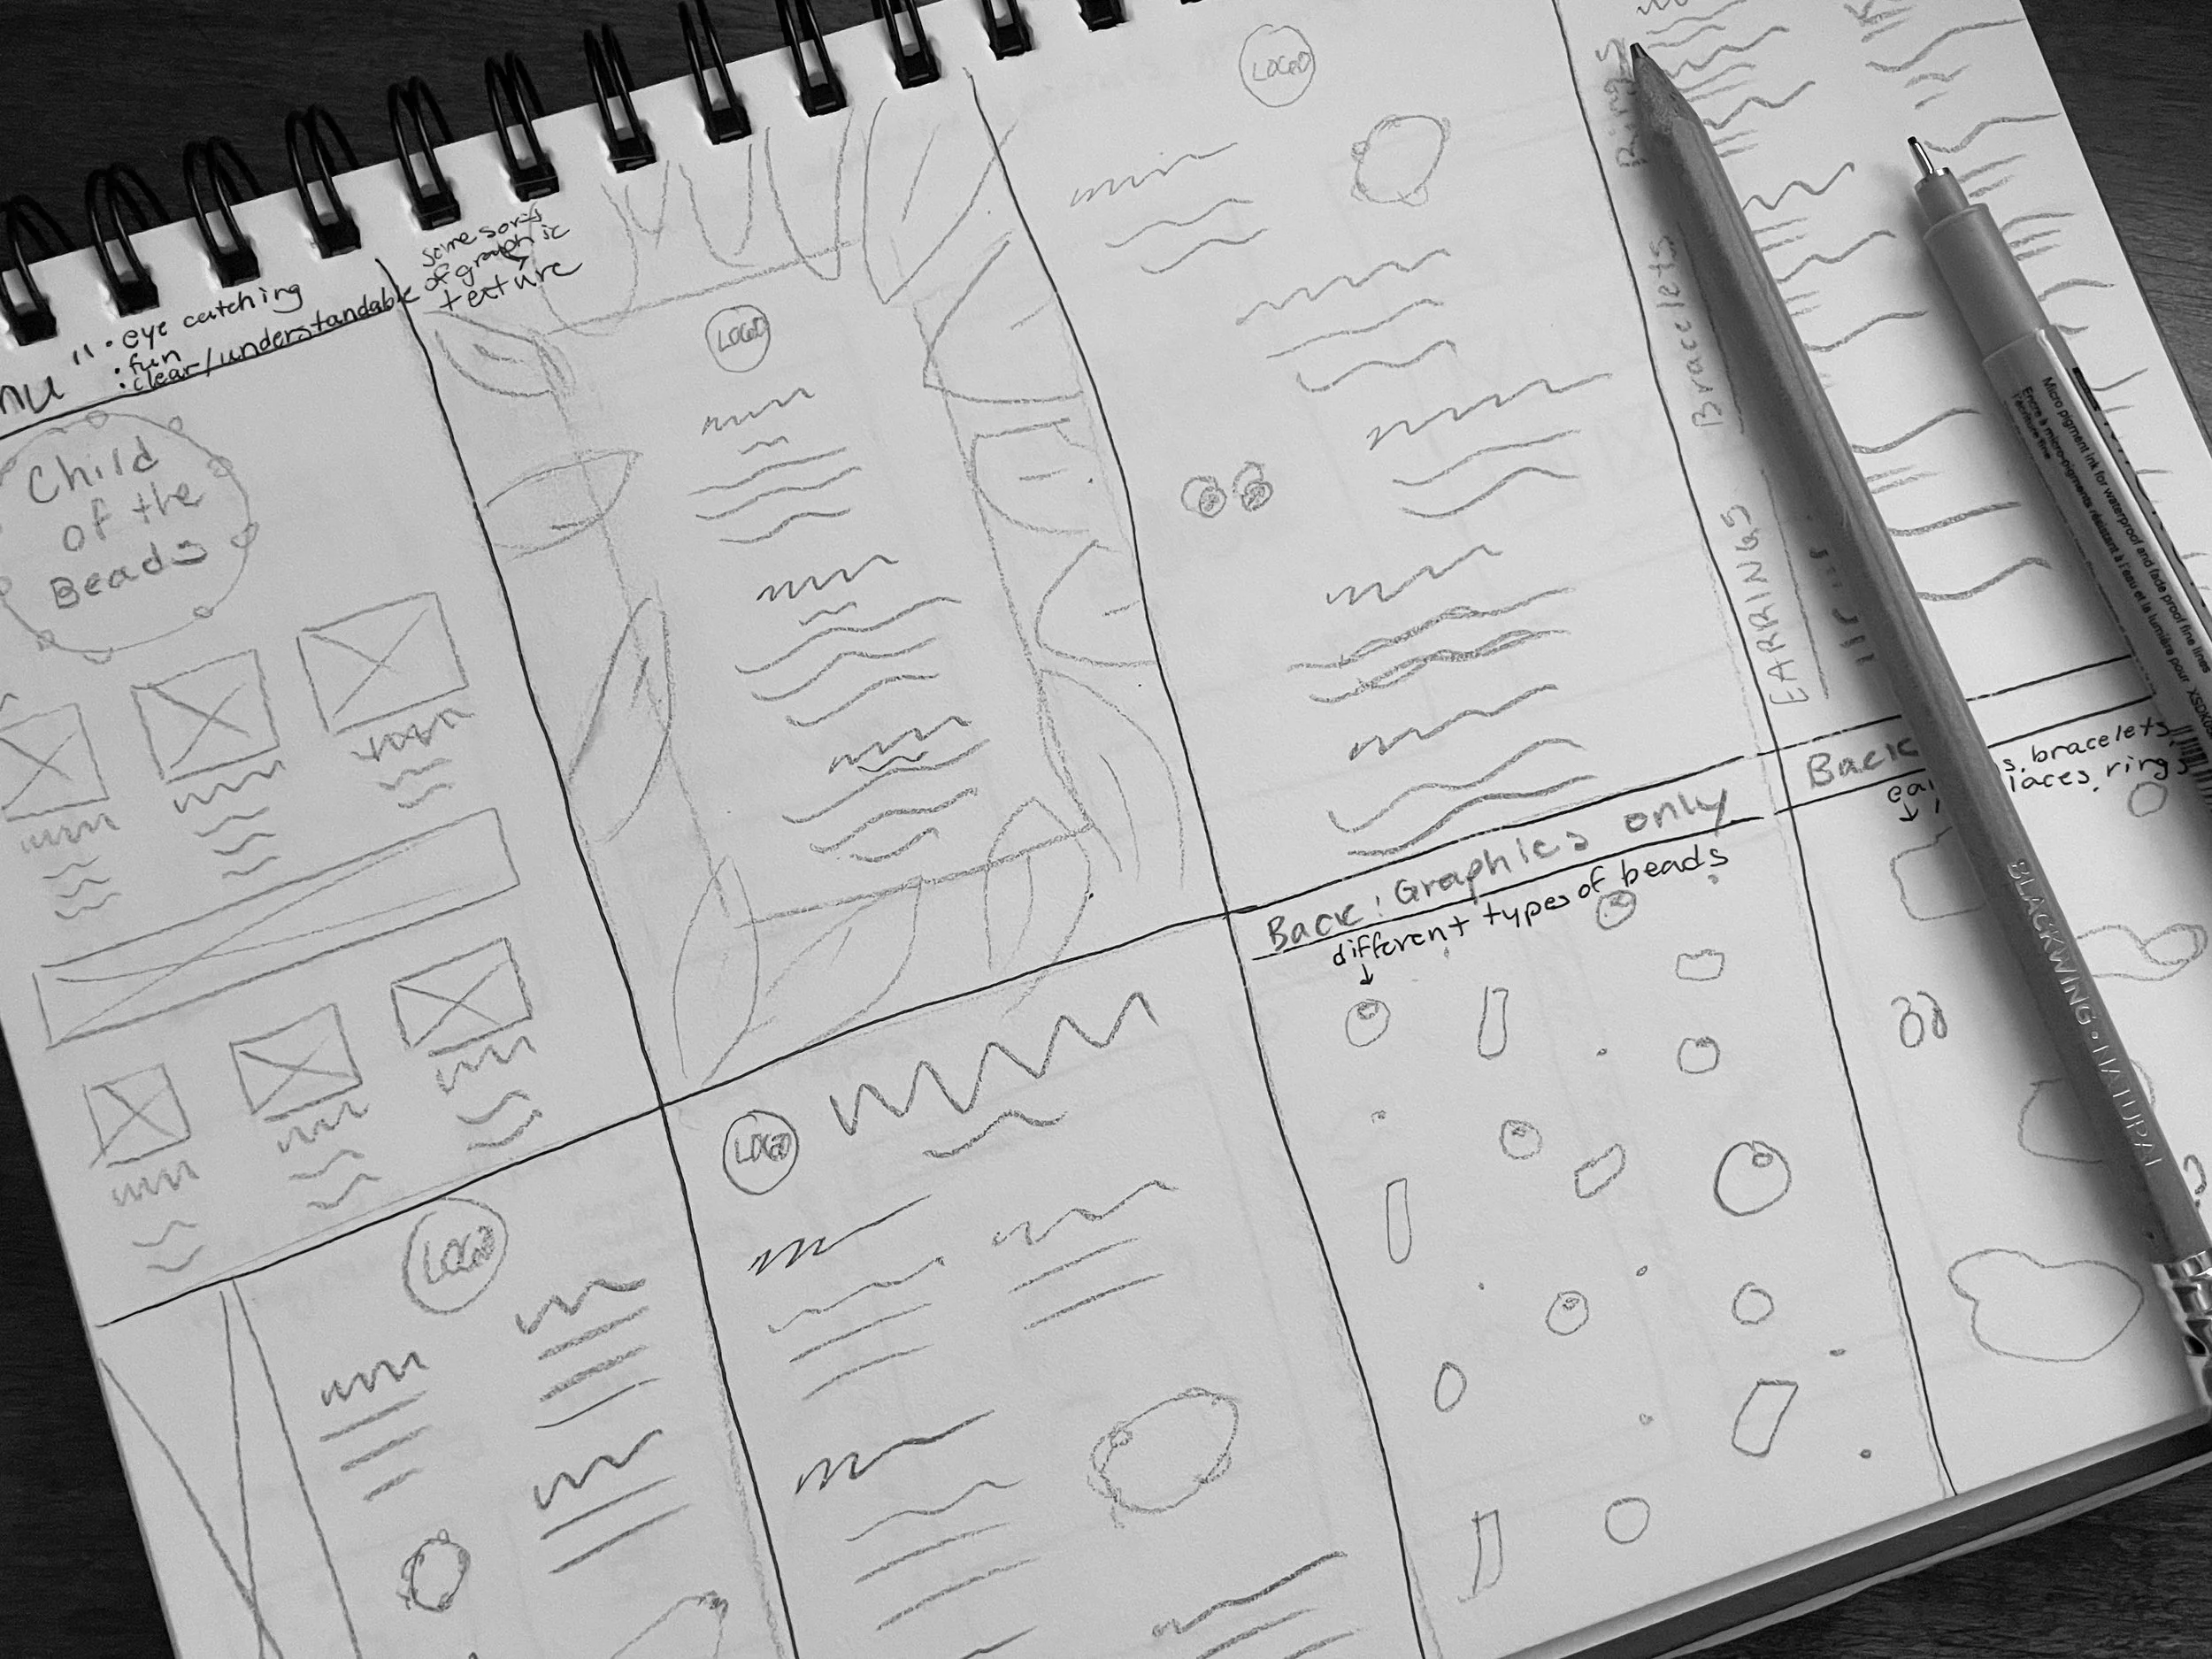 " • eye catching
• fun
• clear/understandable
some sort
of graphic
texture
Child
of the
Beads
LOGO
LOGO
Rings
Bracelets
EARRINGS
Back: Graphics only
different types of beads
Back
s, bracelets,
laces, rings
LOGO
LOGO
Micro pigment ink for waterproof and fade proof fine lines
Encre à micro-pigments résistant à l'eau et la lumière pour
l'écriture fine
BLACKWING • NATURAL